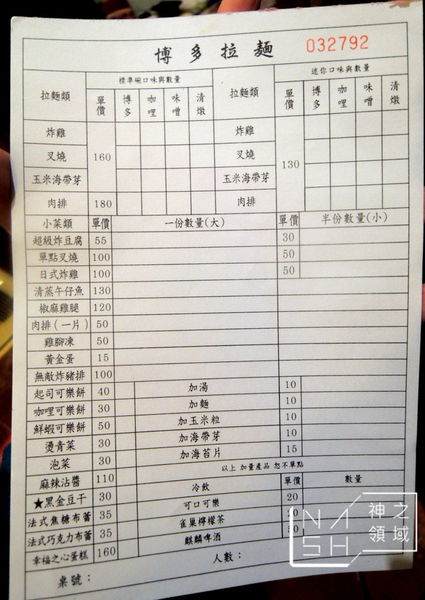 博多拉麵
032792
拉麵類 標準碗口味與數量 拉麵類 迷你口味與數量
單價 博多 咖哩 味噌 清燉 單價 博多 咖哩 味噌 清燉
炸雞 160 炸雞 130
叉燒 叉燒
玉米海帶芽 玉米海帶芽
肉排 180 肉排
小菜類 單價 一份數量(大) 單價 半份數量(小)
超級炸豆腐 55 30
單點叉燒 100 50
日式炸雞 100 50
清蒸午仔魚 130
椒麻雞腿 120
肉排(一片) 50
雞腳凍 50
黃金蛋 15
無敵炸豬排 100
起司可樂餅 40 加湯 10
咖哩可樂餅 30 加麵 10
鮮蝦可樂餅 50 加玉米粒 10
燙青菜 30 加海帶芽 10
泡菜 30 加海苔片 15
麻辣沾醬 110 以上加量產品 恕不單點
★黑金豆干 30 冷飲 數量
法式焦糖布蕾 35 可口可樂 20
法式巧克力布蕾 35 雀巢檸檬茶
幸福之心蛋糕 160 麒麟啤酒
桌號: 人數:
NASH 神之領域